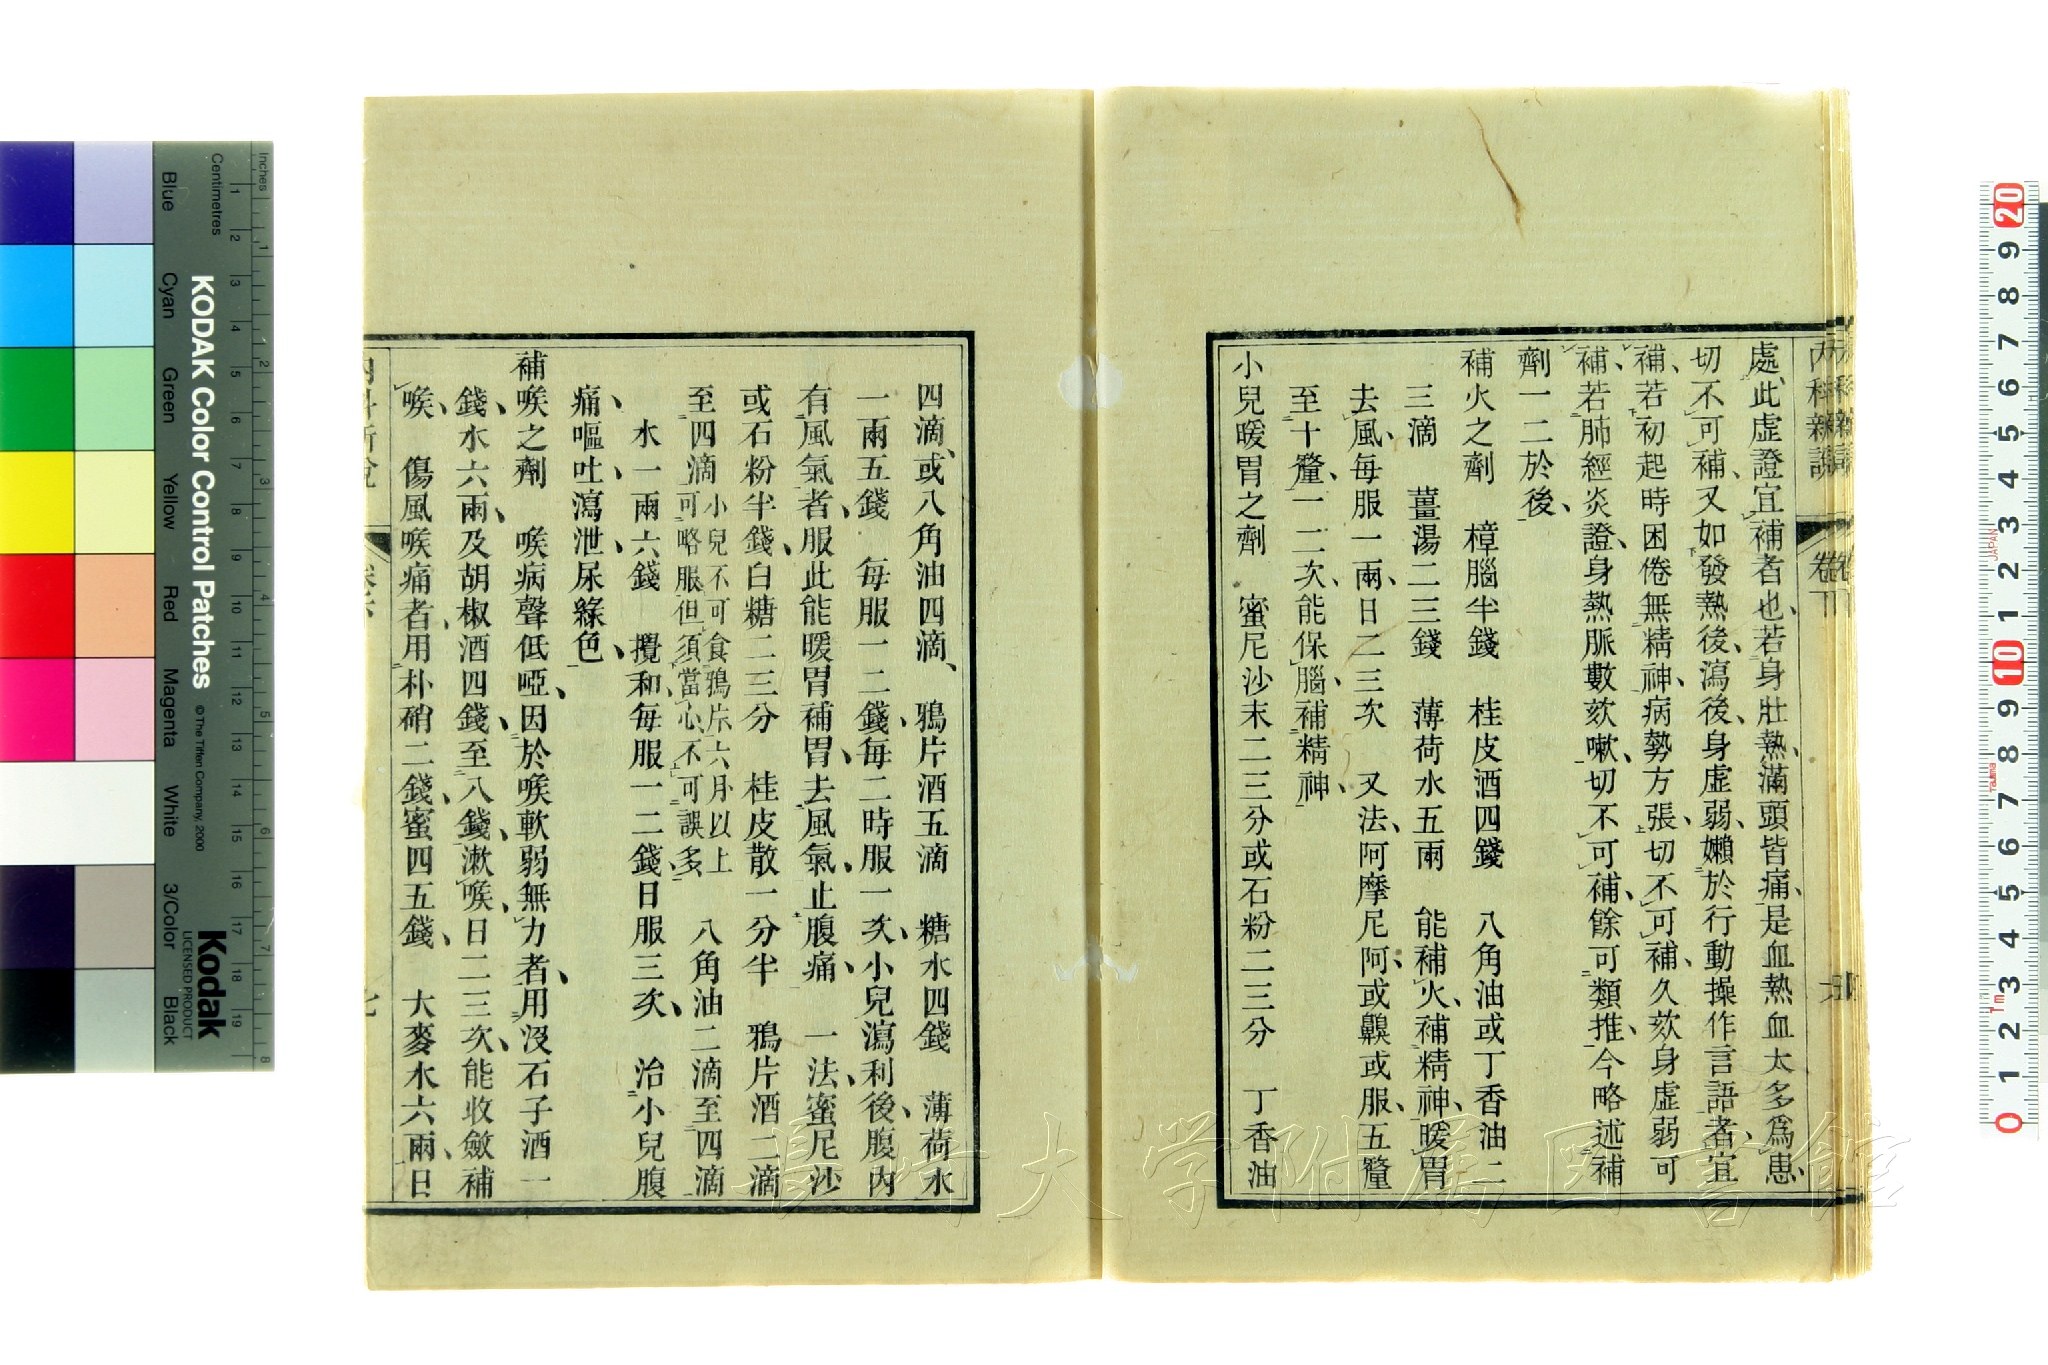 處、此虛證宜補者也、若身壯熱、滿頭皆痛、是血熱血太多爲患、
切不可補、又如發熱後、瀉後、身虛弱、嬾於行動操作言語者、宜
補、若初起時困倦無精神、病勢方張、切不可補、久欬身虛弱可
補、若肺經炎證、身熱脈數欬嗽、切不可補、餘可類推、今略述補
劑一二於後、
補火之劑　樟腦半錢　桂皮酒四錢　八角油或丁香油二
三滴　薑湯二三錢　薄荷水五兩　能補火、補精神、暖胃
去風、每服一兩、日二三次　又法、阿摩尼阿、或齅或服、五釐
至十釐、一二次、能保腦、補精神、
小兒暖胃之劑　蜜尼沙末二三分或石粉二三分　丁香油
四滴、或八角油四滴、　鴉片酒五滴　糖水四錢　薄荷水
一兩五錢　每服一二錢、每二時服一次、小兒瀉利後、腹內
有風氣者、服此能暖胃補胃、去風氣、止腹痛、　一法、蜜尼沙
或石粉半錢、白糖二三分　桂皮散一分半　鴉片酒二滴
至四滴 小兒不可食鴉片六月以上可略服但須當心、不可誤多 八角油二滴至四滴
水一兩六錢　攪和、每服一二錢、日服三次、　治小兒腹
痛、嘔吐、瀉泄、尿綠色、
補喉之劑　喉病聲低啞、因於喉軟弱無力者、用沒石子酒一
錢、水六兩、及胡椒酒四錢、至八錢、漱喉、日二三次、能收斂補
喉、　傷風喉痛者、用朴硝二錢、蜜四五錢、　大麥水六兩、日
內科新說
卷下
六
七
長崎大学附属図書館
KODAK Color Control Patches
© The Tiffen Company, 2000
Kodak
LICENSED PRODUCT
Inches
Centimetres
Blue
Cyan
Green
Yellow
Red
Magenta
White
3/Color
Black
1 2 3 4 5 6 7 8 9 10 11 12 13 14 15 16 17 18 19
1 2 3 4 5 6 7 8
20 9 8 7 6 5 4 3 2 1 10 9 8 7 6 5 4 3 2 1 0
JAPAN